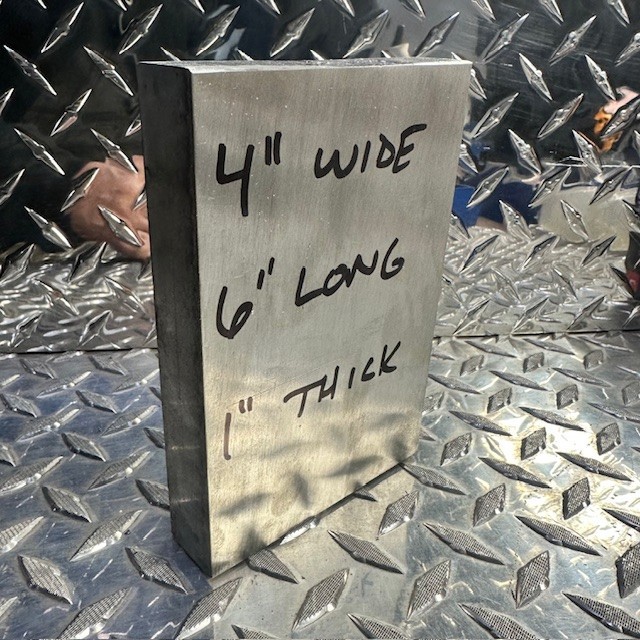 4" WIDE
6" LONG
1" THICK